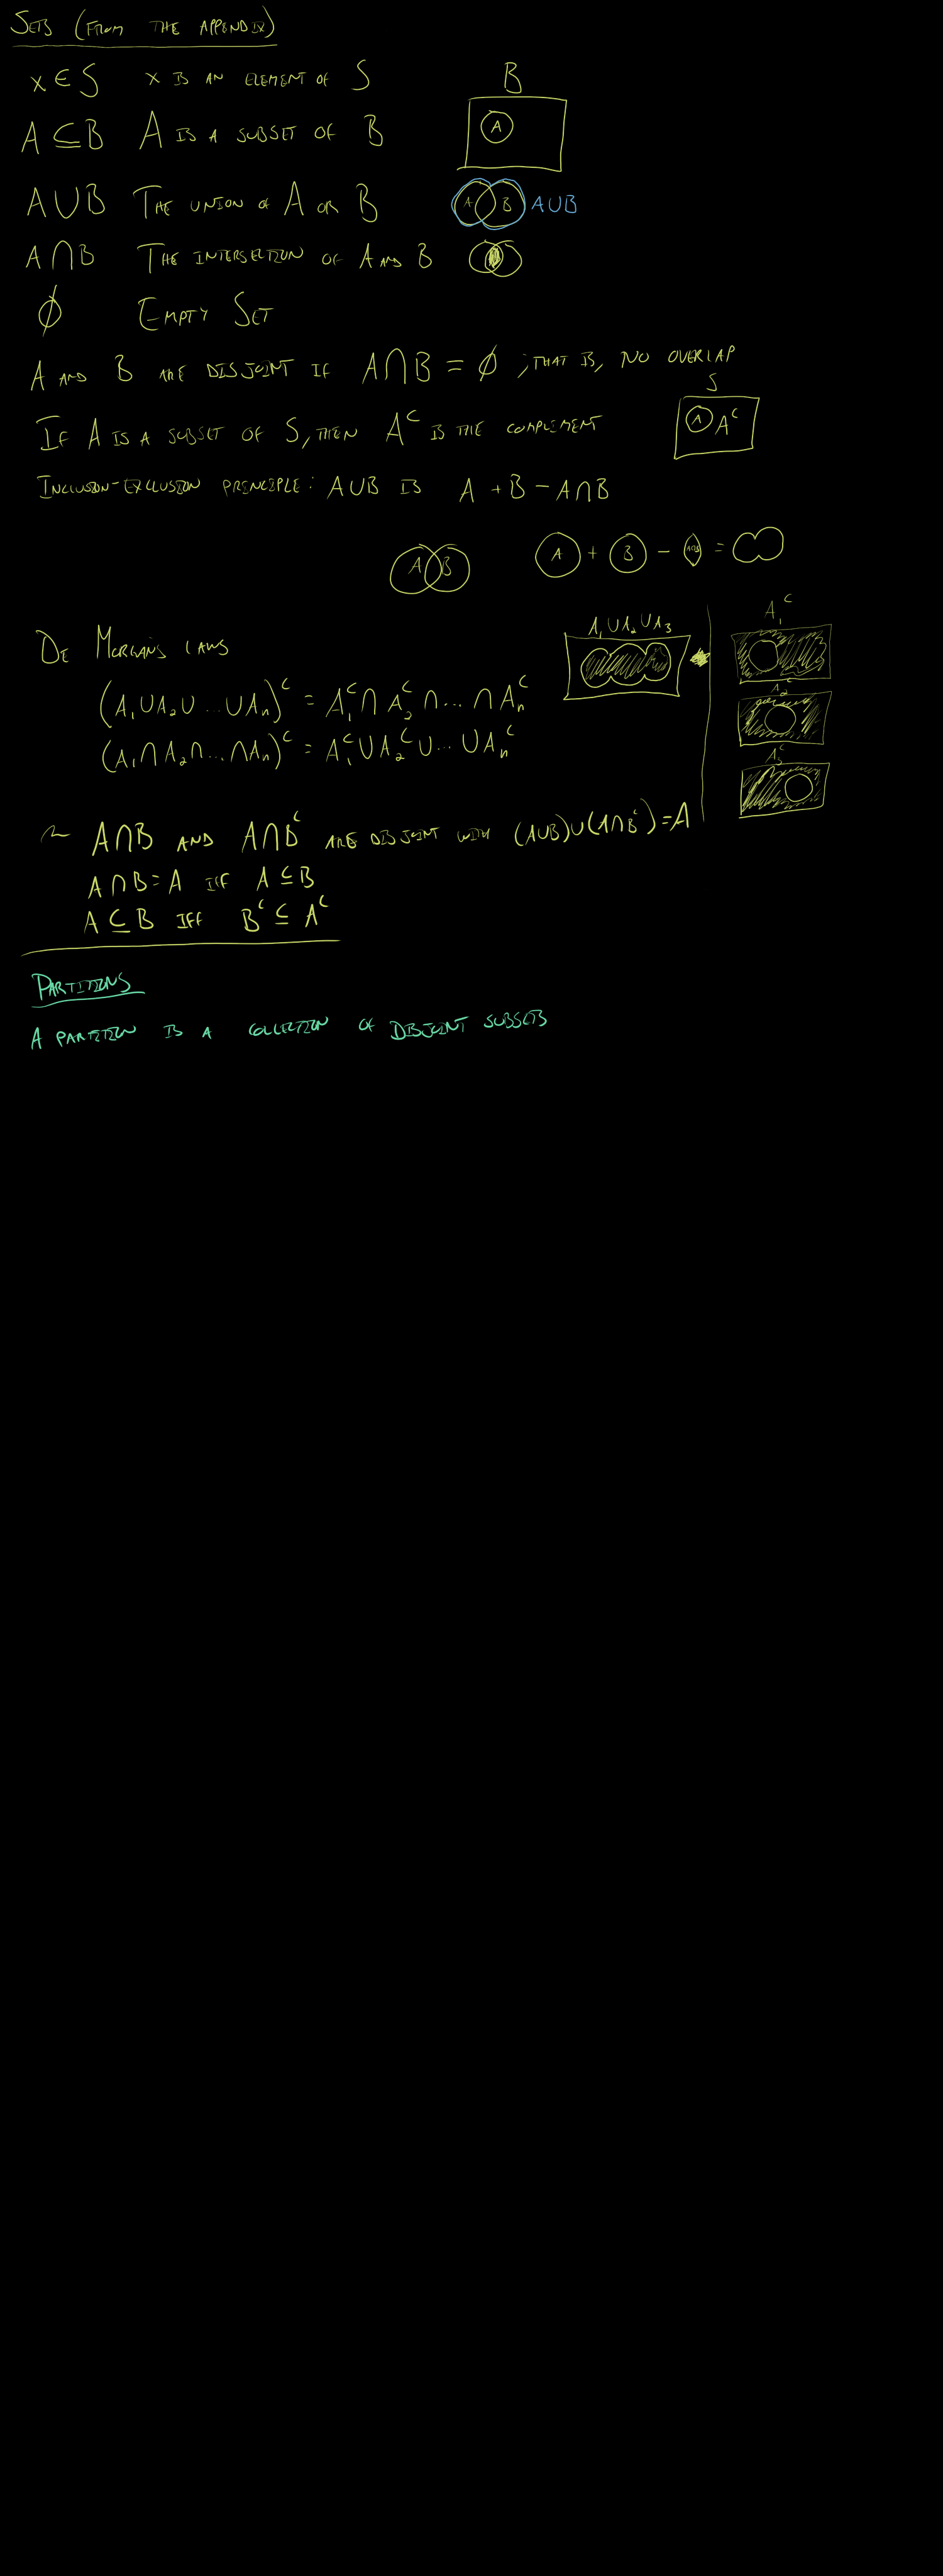 SETS (FROM THE APPENDIX)
x ∈ S x IS AN ELEMENT OF S
B
A ⊆ B A IS A SUBSET OF B
A
A ∪ B THE UNION OF A OR B
A B A ∪ B
A ∩ B THE INTERSECTION OF A AND B
∅ EMPTY SET
A AND B ARE DISJOINT IF A ∩ B = ∅ ; THAT IS, NO OVERLAP
S
IF A IS A SUBSET OF S, THEN Aᶜ IS THE COMPLEMENT
A Aᶜ
INCLUSION-EXCLUSION PRINCIPLE: A∪B IS A + B − A∩B
A B
A + B − A∩B =
DE MORGAN'S LAWS
A₁∪A₂∪A₃
A₁ᶜ
A₂ᶜ
A₃ᶜ
(A₁∪A₂∪...∪Aₙ)ᶜ = A₁ᶜ∩A₂ᶜ∩...∩Aₙᶜ
(A₁∩A₂∩...∩Aₙ)ᶜ = A₁ᶜ∪A₂ᶜ∪...∪Aₙᶜ
~ A∩B AND A∩Bᶜ ARE DISJOINT WITH (A∪B)∪(A∩Bᶜ)=A
A∩B=A IFF A⊆B
A⊆B IFF Bᶜ⊆Aᶜ
PARTITIONS
A PARTITION IS A COLLECTION OF DISJOINT SUBSETS